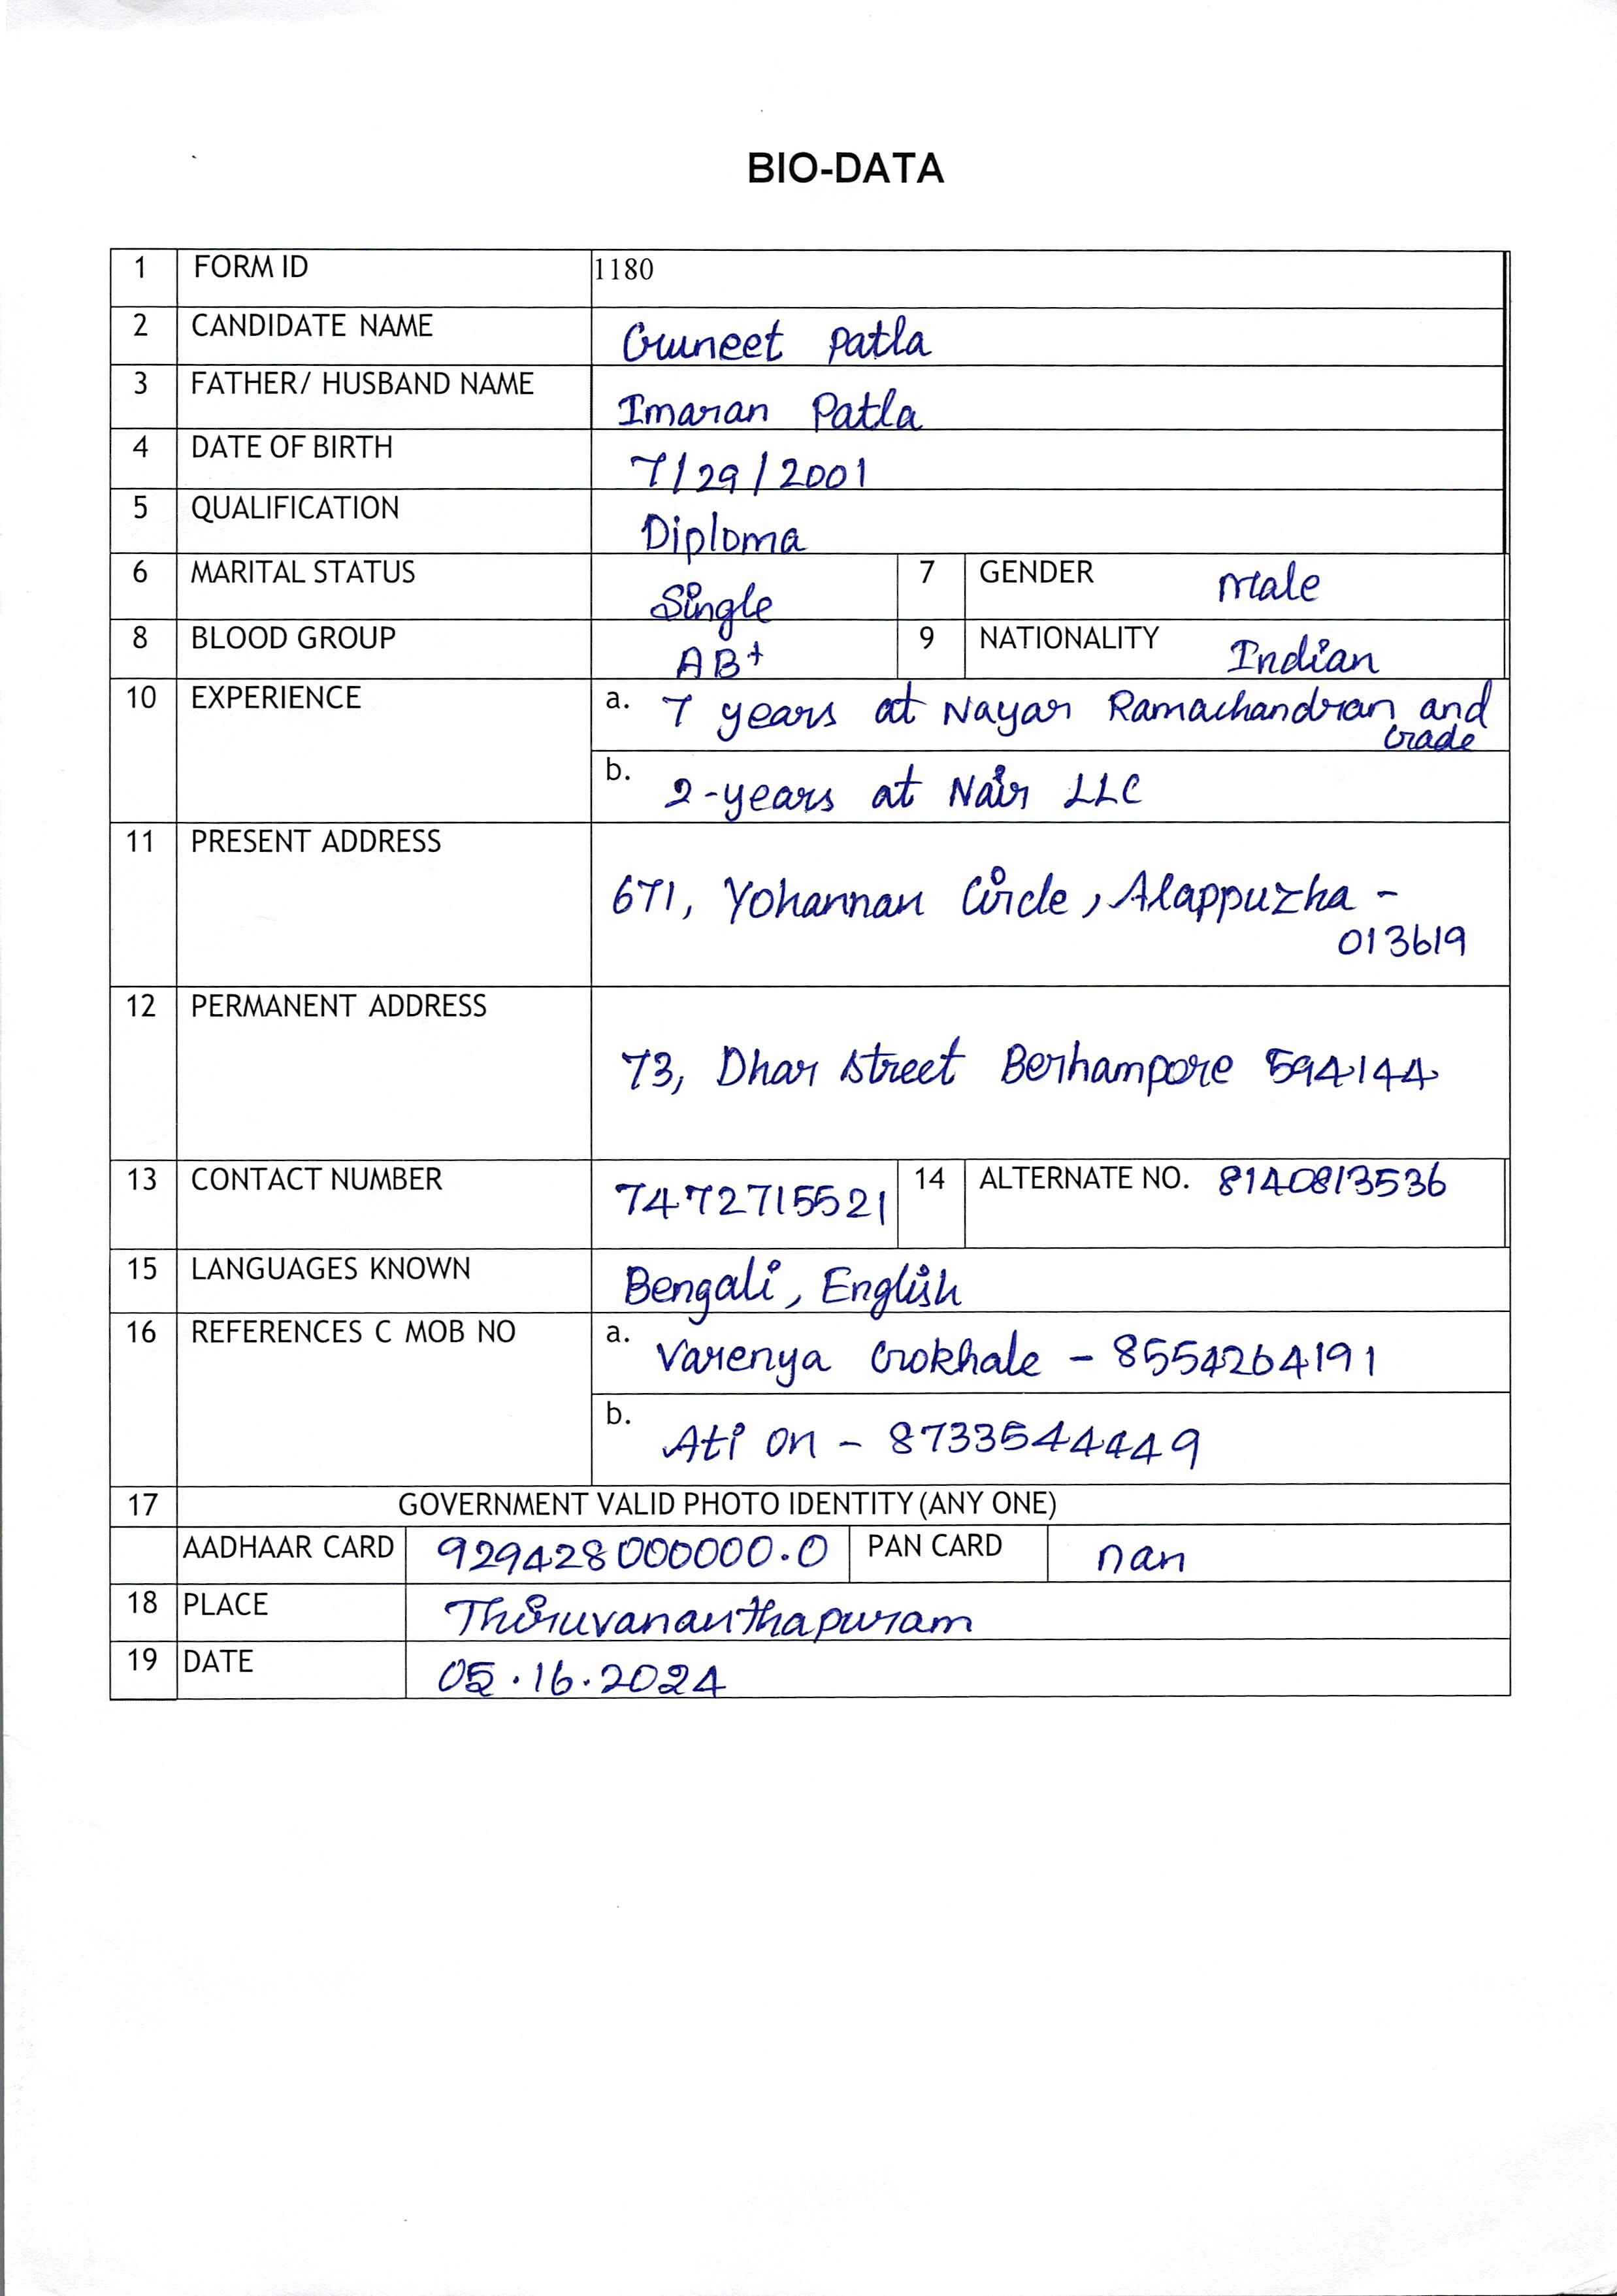 BIO-DATA
1 FORM ID 1180
2 CANDIDATE NAME Guneet Patla
3 FATHER/ HUSBAND NAME Imaran Patla
4 DATE OF BIRTH 7/29/2001
5 QUALIFICATION Diploma
6 MARITAL STATUS Single 7 GENDER Male
8 BLOOD GROUP AB+ 9 NATIONALITY Indian
10 EXPERIENCE a. 7 years at Nayar Ramachandran and
Gade
b. 2-years at Nair LLC
11 PRESENT ADDRESS
671, Yohannan Circle, Alappuzha -
013619
12 PERMANENT ADDRESS
73, Dhar street Berhampore 594144
13 CONTACT NUMBER 7472715521 14 ALTERNATE NO. 8140813536
15 LANGUAGES KNOWN Bengali, English
16 REFERENCES C MOB NO a. Varenya Gokhale - 8554264191
b. Ati On - 8733544449
17 GOVERNMENT VALID PHOTO IDENTITY (ANY ONE)
AADHAAR CARD 929428000000.0 PAN CARD nan
18 PLACE Thiruvananthapuram
19 DATE 05.16.2024